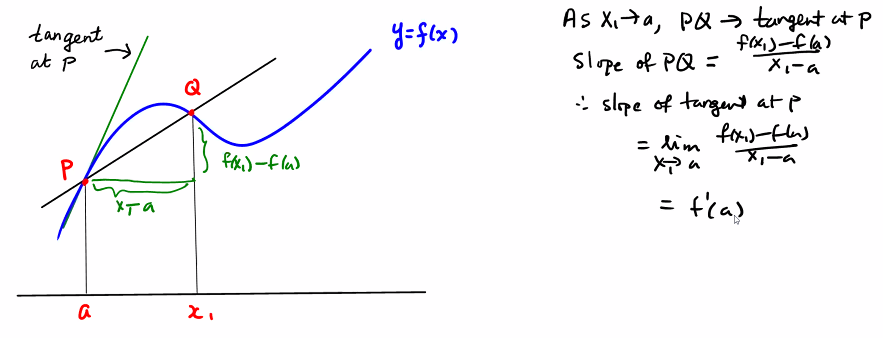 tangent
at P
y=f(x)
Q
P
f(x₁)-f(a)
x₁-a
a
x₁
As x₁→a, PQ → tangent at P
slope of PQ = \frac{f(x₁)-f(a)}{x₁-a}
∴ slope of tangent at P
= \lim_{x₁→a} \frac{f(x₁)-f(a)}{x₁-a}
= f'(a)